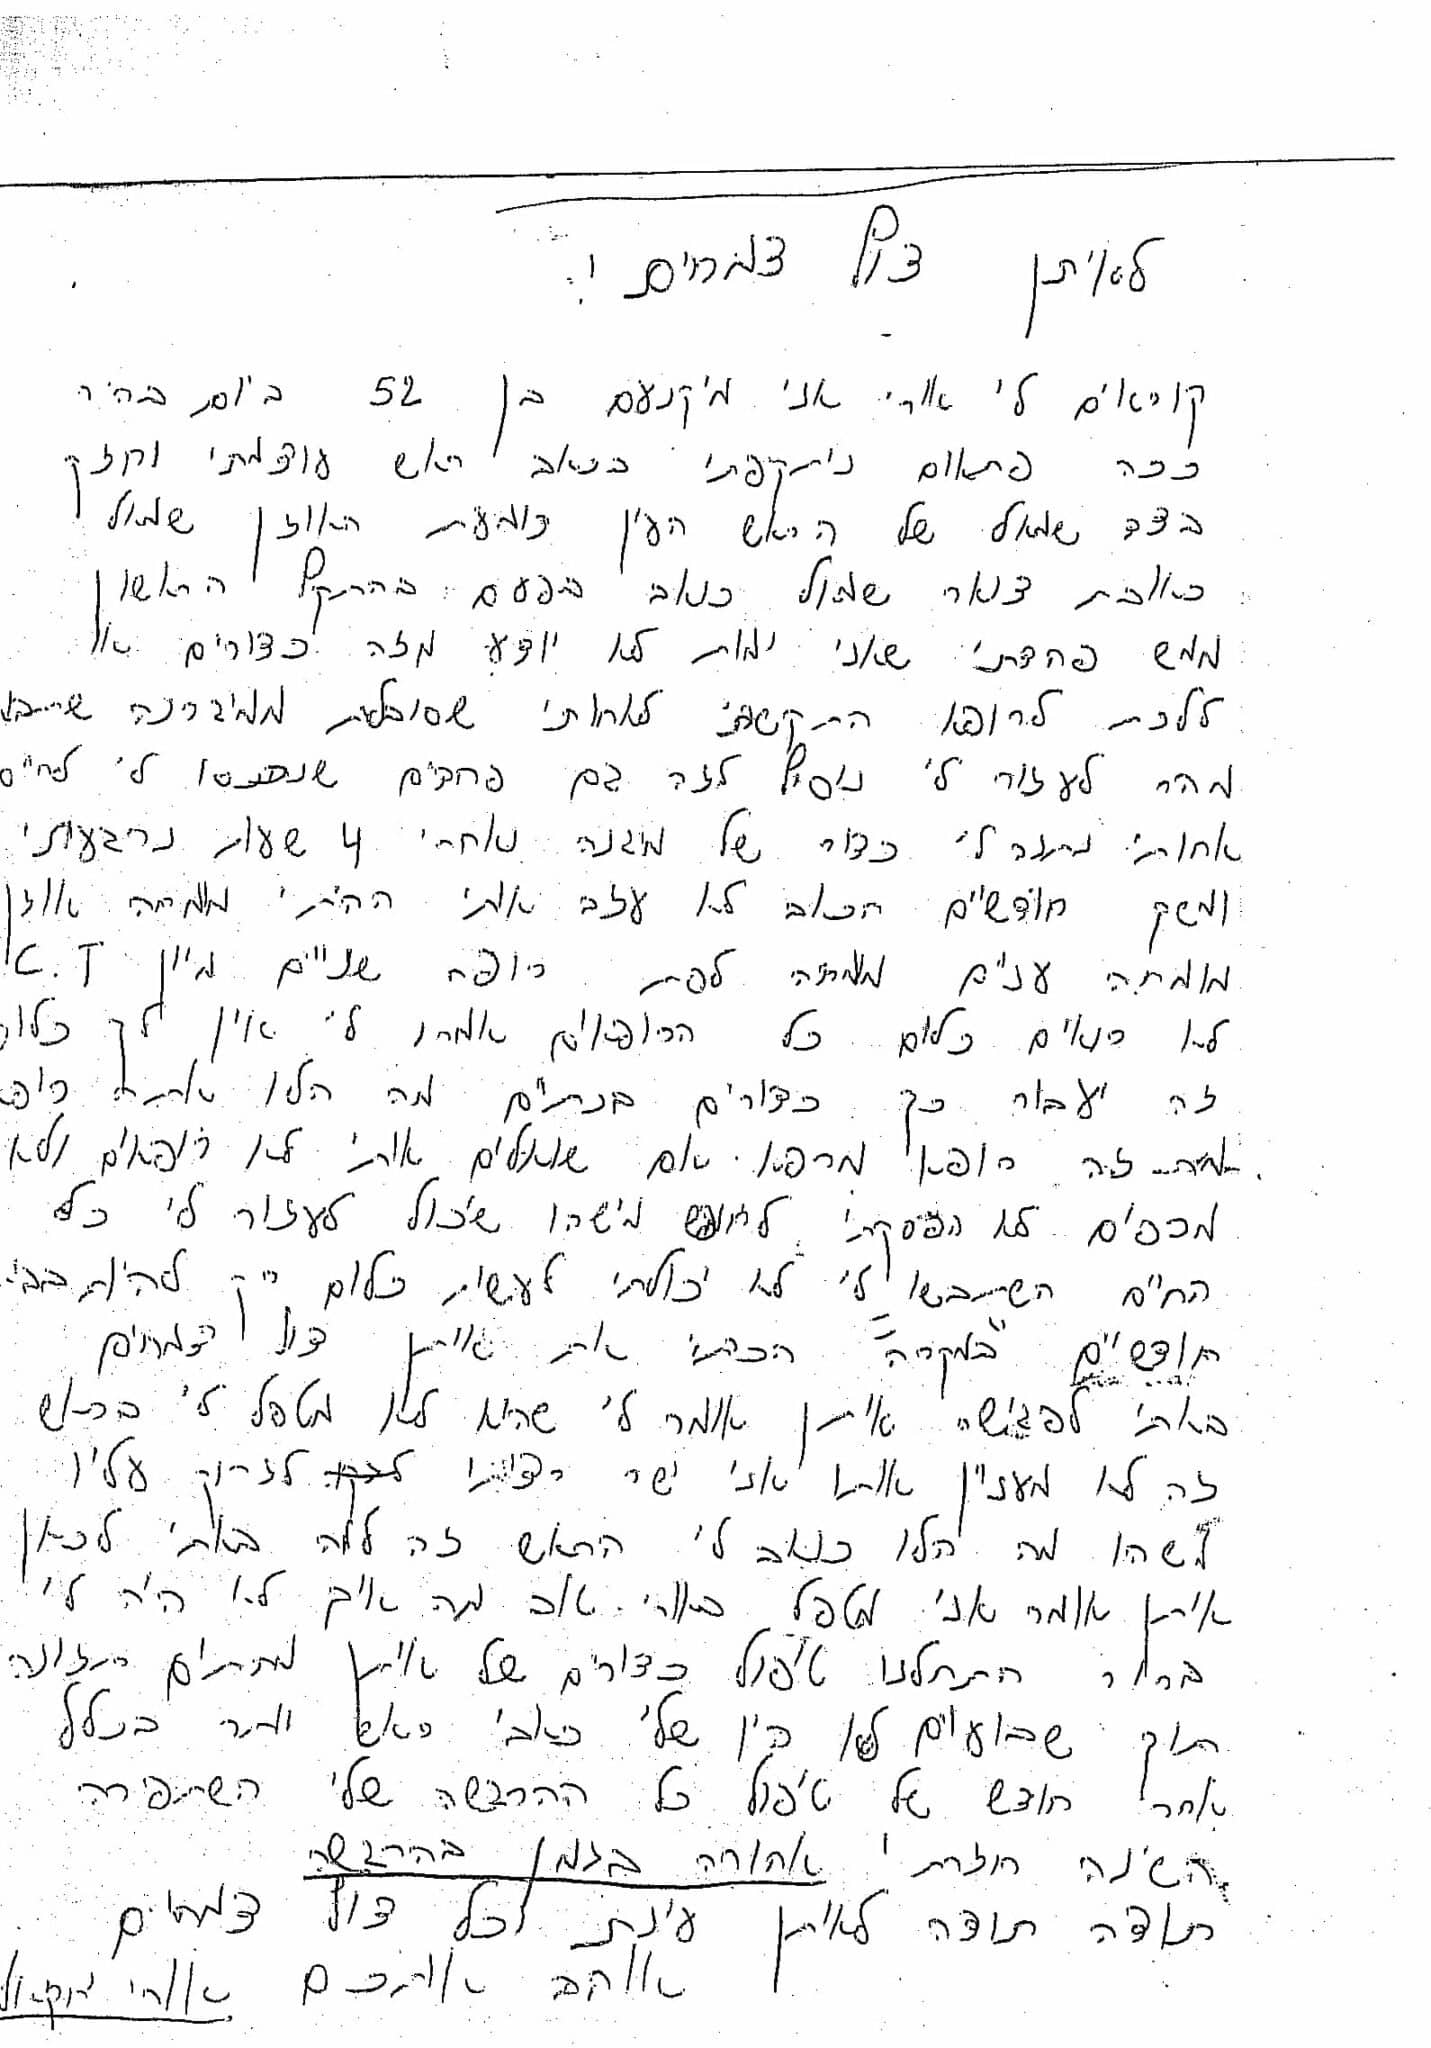 לאיתן צוף צמחים !
קוראים לי אורי אני מיקנעם בן 52 ביום בהיר
ככה פתאום ניתקפתי בכאב ראש עוצמתי וחזק
בצד שמאל של הראש העין כומעת האוזן שמאל
כואבת צואר שמאל כואב בפעם בהתקף הראשון
ממש פחדתי שאני ימות לא יודע מזה כדורים או
ללכת לרופא התקשתי לאחותי שסובלת ממיגרנה שתבא
מהר לעזור לי ניסיף לזה גם פחדים שנכנסו לי לחיים
אחותי נתנה לי כדור של מיגנה אחרי 4 שעות נרגעתי
ומשך חודשיים הכאב לא עזב אותי הייתי מומחה אוזן
מומחה עניים מומחה לסת רופה שניים מיון C.T
לא רואים כלום כל הרופאים אמרו לי אין לך כלום
זה יעבור קח כדורים בנתיים מה הלו אתה רופא
זה רופא מרפא אם שואלים אותי לא רופאים ולא
מרפים לא הפסקתי לחפש מישהו שיכול לעזור לי כל
החיים השתבשו לי לא יכולתי לעשות כלום רק להיות בבית
חודשיים "במקרה" הכרתי את איתן צוף צמחים
באתי לפגישה איתן אומר לי שהוא לא מטפל לי בראש
זה לא מעניין אותו אני ישר רציתי לזרוק עליו
משהו מה הלו כואב לי הראש זה למה באתי לכאן
איתן אומר אני מטפל באורי טוב מה איך לא היה לי
ברור התחלנו טיפול כדורים של איתן מתחים תזונה
תוך שבועיים לא היו שלי כאבי ראש יותר בכלל
אחרי חודש של טיפול כל ההרגשה שלי השתפרה
השינה חזרתי אחורה בזמן בהרגשה
תודה תודה לאיתן עינת וכל צוף צמחים
אוהב אותכם אורי